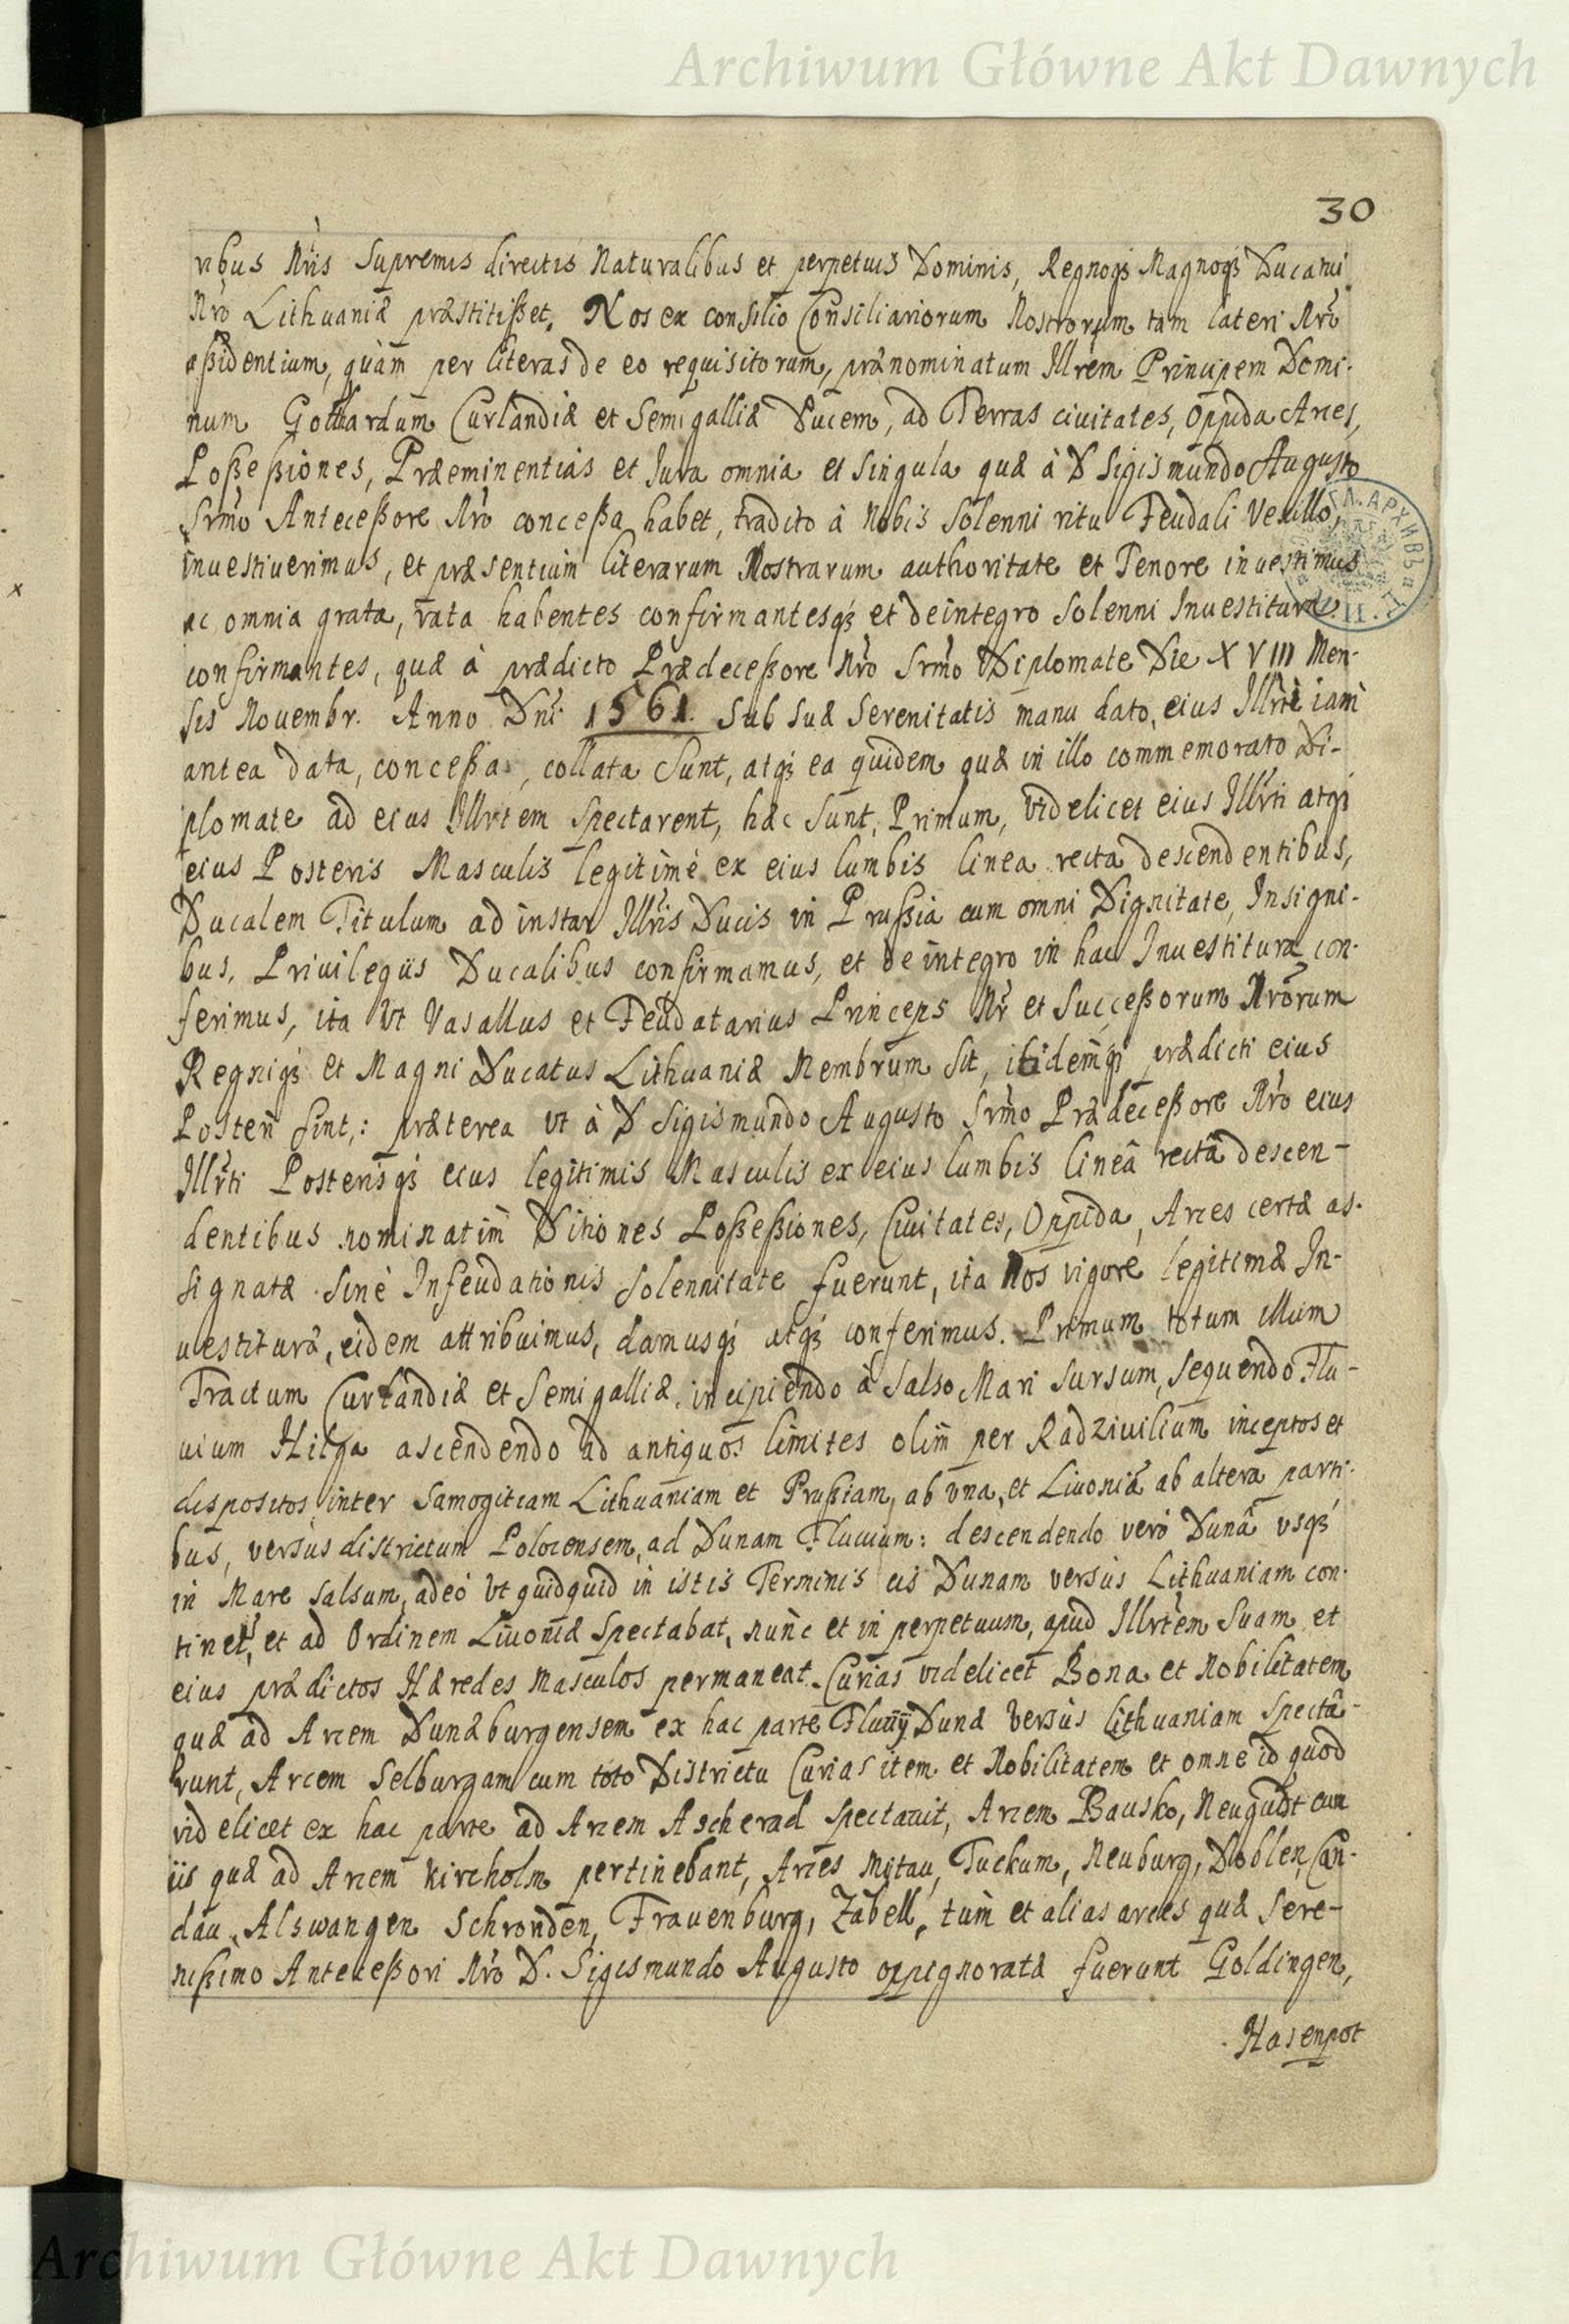 Archiwum Główne Akt Dawnych
30
ribus Nris Supremis directis Naturalibus et perpetuis Dominis, Regnoq3 Magnoq3 Ducatui
Nro Lithuaniæ præstitißet. Nos ex consilio Consiliariorum Nostrorum tam lateri Nro
aßidentium, quàm per literas de eo requisitorum, prænominatum Illrem Principem Domi-
num Gothardum Curlandiæ et Semigalliæ Ducem, ad Terras civitates, Oppida Arces,
Poßeßiones, Præeminentias et Iura omnia et singula quæ à D Sigismundo Augusto
Srmo Anteceßore Nro conceßa habet, tradito à Nobis Solenni ritu Feudali Vexillo
inuestiuerimus, et præsentium literarum Nostrarum authoritate et Tenore inuestimus
ac omnia grata, rata habentes confirmantesq3 et deintegro Solenni Inuestitura
confirmantes, quæ à prædicto Prædeceßore Nro Srmo Diplomate Die XVIII Men-
sis Nouembr. Anno Dni. 1561. Sub Suæ Serenitatis manu dato, eius Illrti iam
antea data, conceßa, collata Sunt, atq3 ea quidem quæ in illo commemorato Di-
plomate ad eius Illrtem spectarent, hæc sunt, Primum, videlicet eius Illrti atq3
eius Posteris Masculis legitimè ex eius lumbis linea recta descendentibus,
Ducalem Titulum ad instar Illris Ducis in Prußia cum omni Dignitate, Insigni-
bus, Priuilegiis Ducalibus confirmamus, et de integro in hac Inuestitura con-
ferimus, ita Vt Vasallus et Feudatarius Princeps Nr et Succeßorum Nrorum
Regniq3 et Magni Ducatus Lithuaniæ Membrum sit, itidemq3 prædicti eius
Posteri sint,: præterea vt à D Sigismundo Augusto Srmo Prædeceßore Nro eius
Illrti Posterisq3 eius legitimis Masculis ex eius lumbis lineâ rectâ descen-
dentibus nominatim Ditiones Poßeßiones, Ciuitates, Oppida, Arces certæ as-
signatæ sinè Infeudationis Solennitate fuerunt, ita Nos vigore legitimæ In-
uestituræ, eidem attribuimus, damusq3 atq3 conferimus. Primum totum illum
Tractum Curlandiæ et Semigalliæ, incipiendo à Salso Mari sursum, sequendo Flu-
uium Hilga ascendendo ad antiquos limites olim per Radziuilium inceptos et
dispositos inter Samogitiam Lithuaniam et Prußiam, ab vna, et Liuoniâ ab altera parti-
bus, versùs districtum Polocensem, ad Dunam Fluuium: descendendo verò Dunâ vsq3
in Mare salsum, adeò Vt quidquid in istis Terminis cis Dunam versùs Lithuaniam con-
tinet, et ad Ordinem Liuoniæ Spectabat, nunc et in perpetuum, apud Illrtem Suam et
eius prædictos Hæredes Masculos permaneat. Curias videlicet Bona et Nobilitatem
quæ ad Arcem Dunæburgensem ex hac parte Fluuij Dunæ Versùs Lithuaniam Spectâ-
runt, Arcem Selburgam cum toto Districtu Curias item et Nobilitatem et omne id quod
videlicet ex hac parte ad Arcem Ascherad spectauit, Arcem Bausko, Neugudt cum
iis quæ ad Arcem Kircholm pertinebant, Arces Mitau, Tuckum, Neuburg, Doblen, Can-
dau, Alswangen Schronden, Frauenburg, Zabell, tùm et alias arces quæ Sere-
nißimo Anteceßori Nro D. Sigismundo Augusto oppignoratæ fuerunt Goldingen,
Hasenpot
Archiwum Główne Akt Dawnych